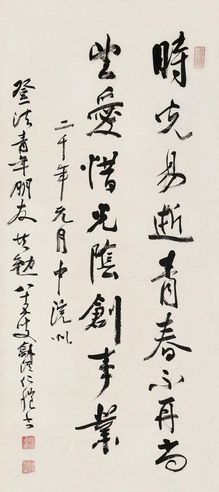 時光易逝青春不再尚
望愛惜光陰創事業
二千年元月中浣以
法青年朋友共勉八十